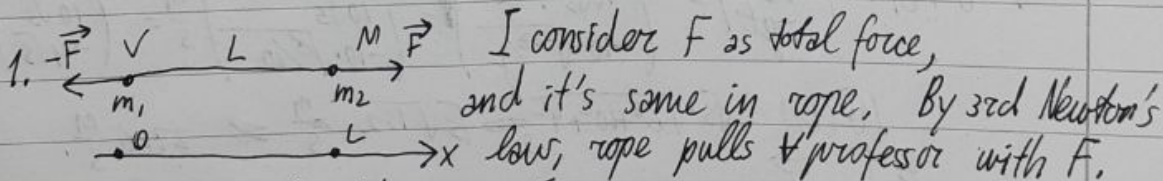 1. -F⃗ V L M F⃗ I consider F as total force,
m₁ m₂ and it's same in rope. By 3rd Newton's
0 L x law, rope pulls ∀ professor with F.